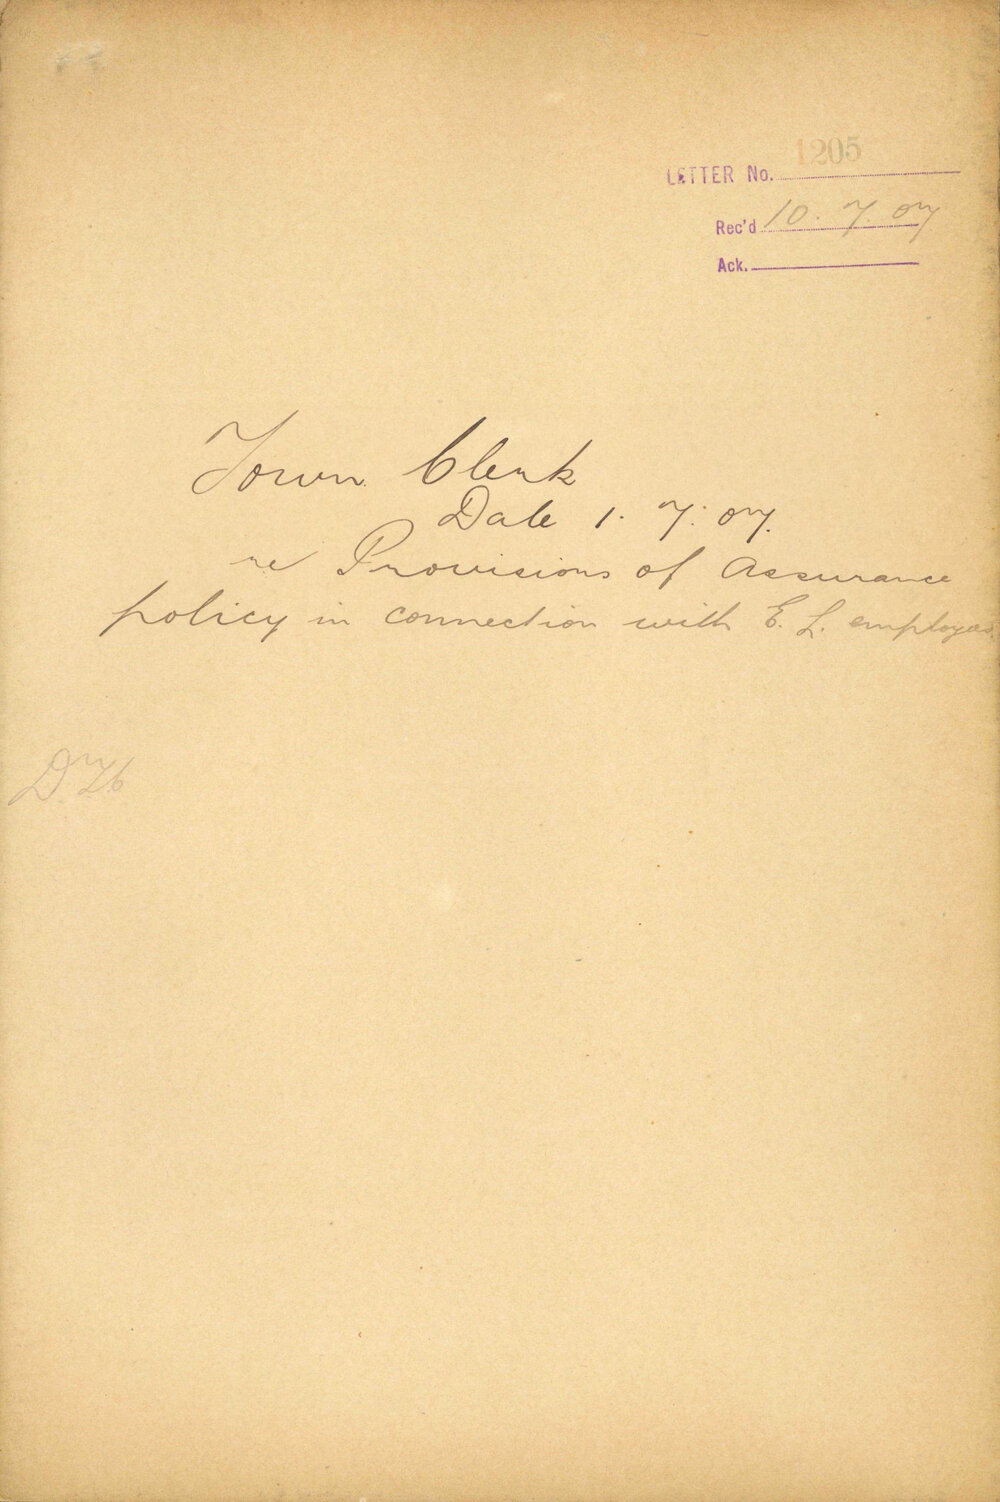 LETTER No. 1205
Rec'd 10. 7. 07
Ack.
Town Clerk
Date 1. 7. 07.
re Provisions of Assurance
policy in connection with E. L. employees.